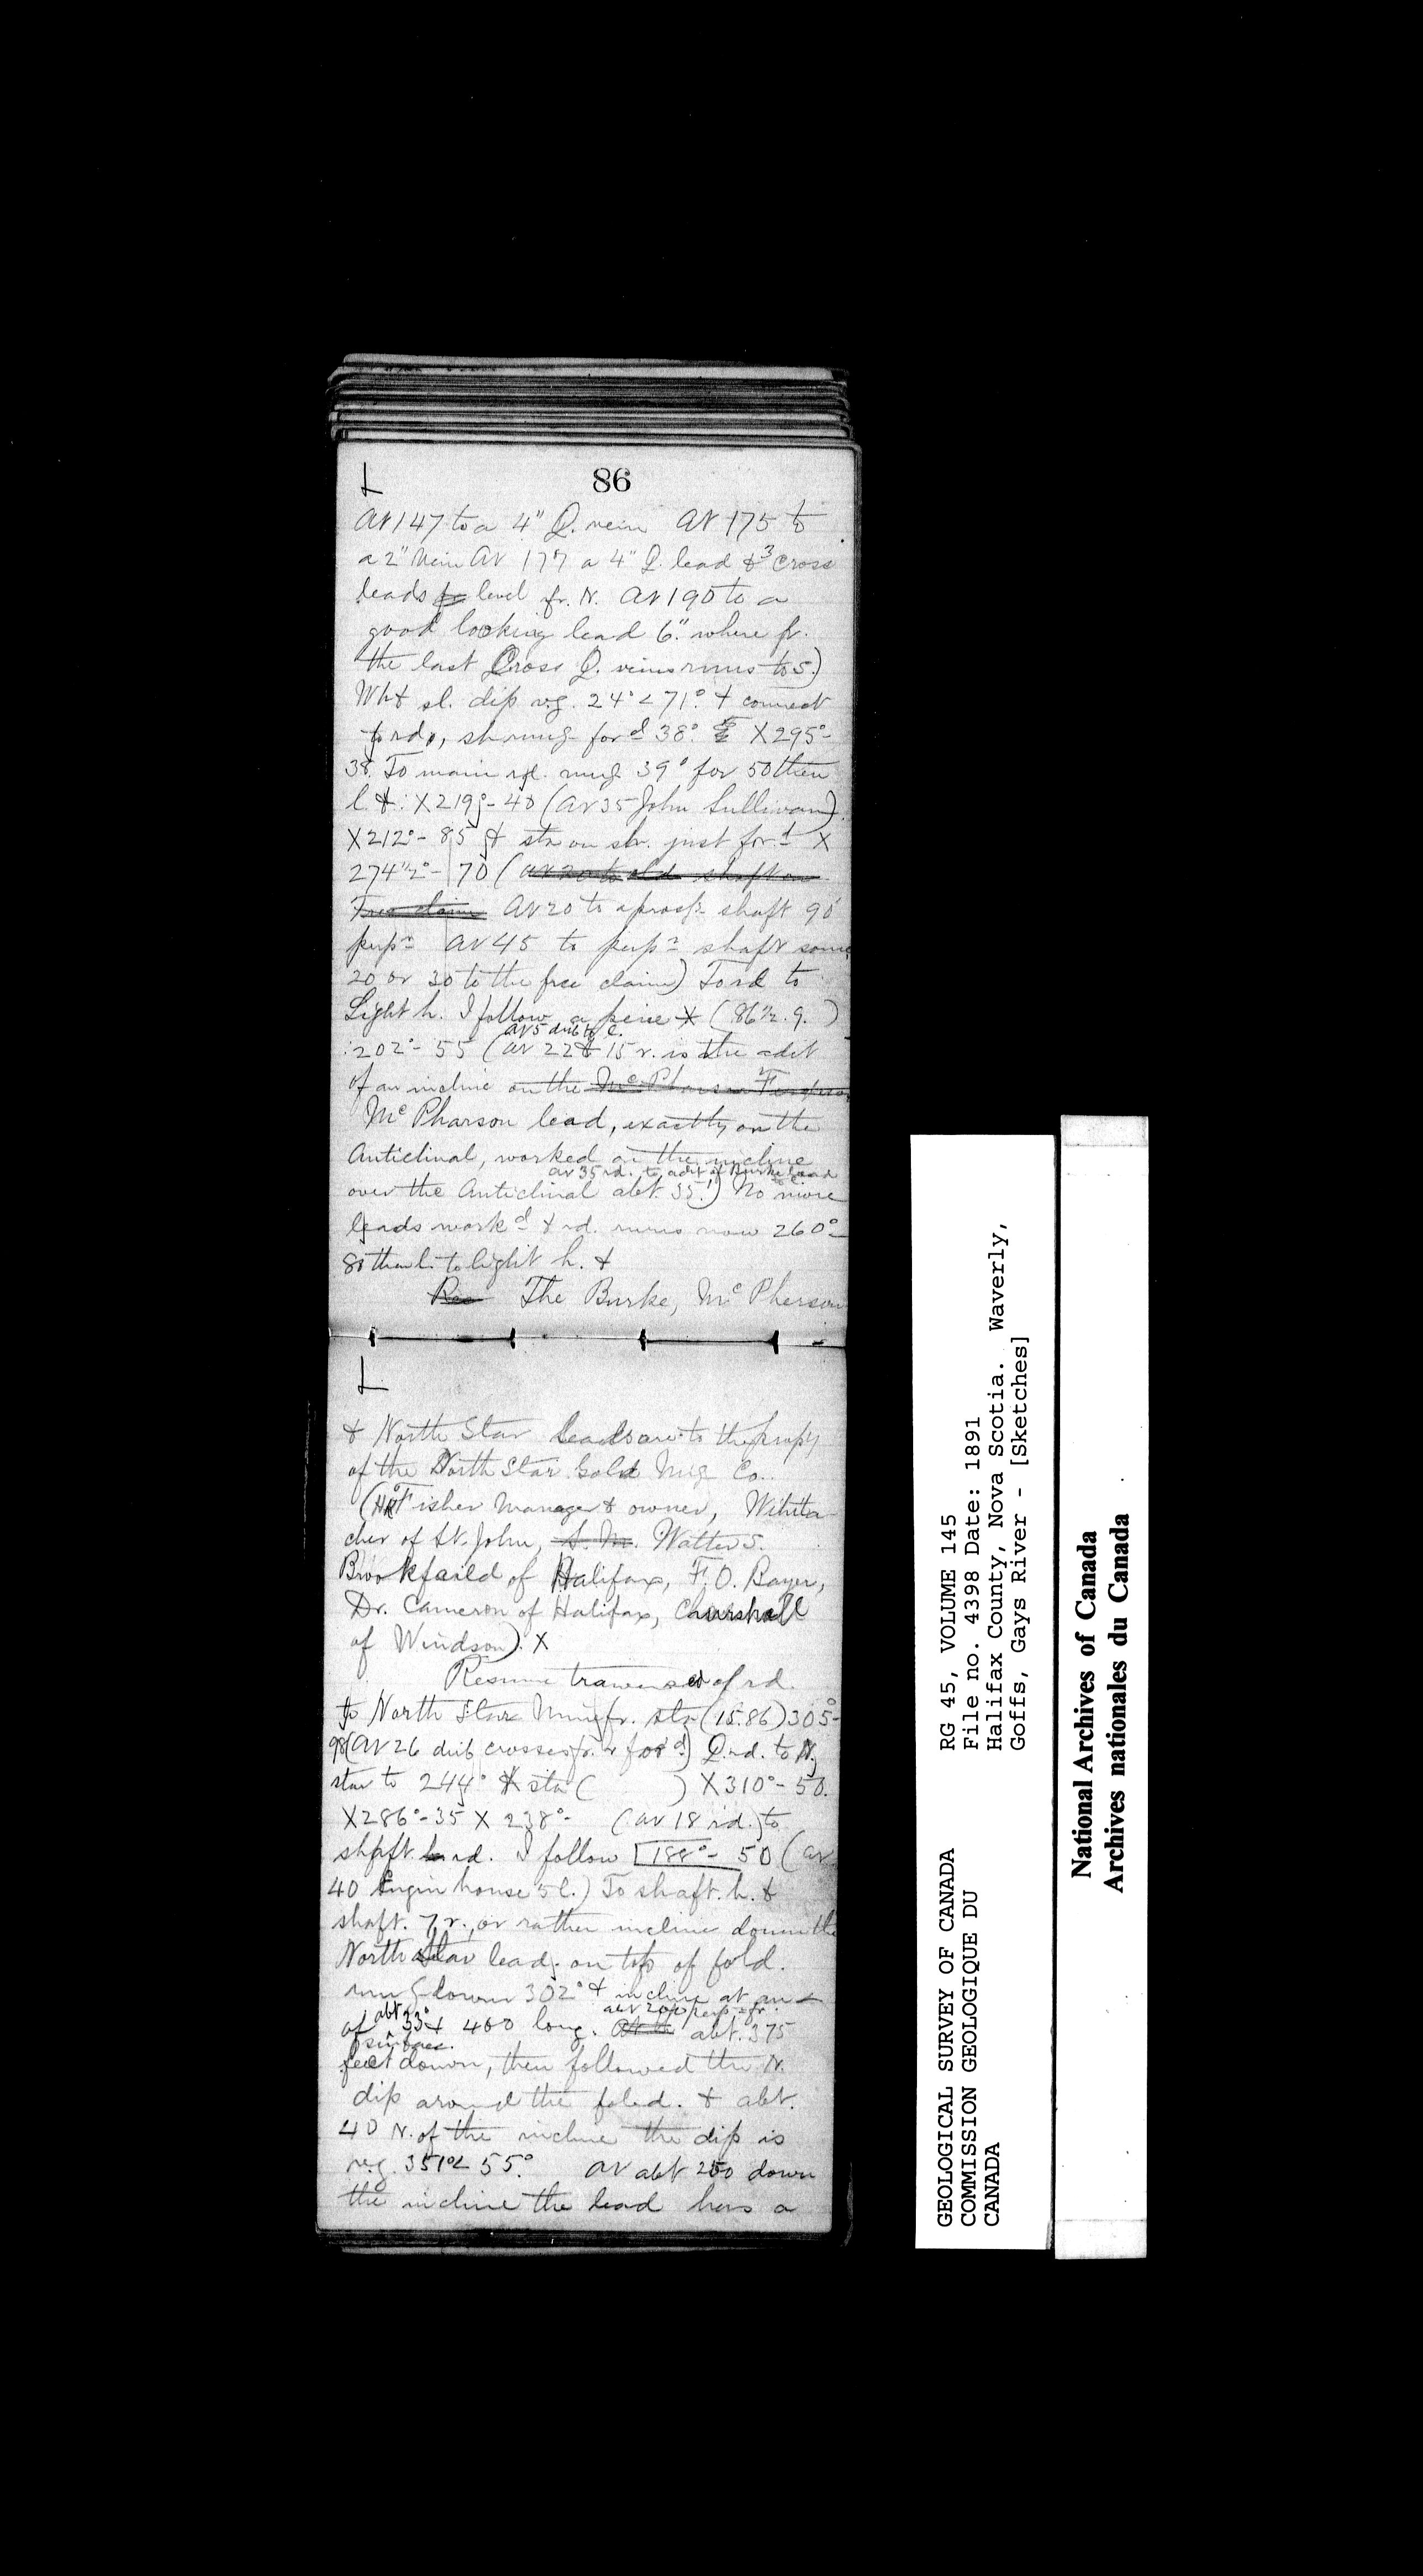 86
L
At 147 to a 4" Q. vein At 175 to
a 2" vein At 177 a 4" Q. lead & 3 cross
leads level fr. N. At 190 to a
good looking lead 6". where fr.
the last Cross Q. veins runs to S.)
Wht sl. dip v.g. 24° < 71°. & connect
rd., for d 38°. X 295°-
38. To main rd. 39° for 50 then
l. &: X 219°- 40 (At 35 John Sullivan)
X 212°- 85 & sta on just for.d X
274 1/2°- 70 (at 20 to old shaft on
Free claim At 20 to a prosp. shaft 90'
perpn At 45 to perpn shaft some
20 or 30 to the free claim) To rd to
Light h. I follow a X (86 1/2. 9. )
At 5 l.
: 202°- 55 (At 22 & 15 r. is the adit
of an incline on the McPharson
McPharson lead, exactly on the
Anticlinal, worked on the incline
At 35 rd. to adit of Burke lead
over the Anticlinal abt. 35'.) No more
leads workd & rd. runs now 260°-
80 then l. to light h. &
The Burke, McPherson
L
& North Star leads are to the propy
of the North Star Gold Mig Co..
Fisher Manager & owner, Wihita-
cher of St. John, S. M. Walter S.
Brookfaild of Halifax, F. O. Bayer,
Dr. Cameron of Halifax, Churshall
of Windson). X
Resume traverse of rd.
to North Star Mine fr. sta (15.86) 305°-
98 (At 26 crosses fr. r ford.) rd. to N.
star to 244° & sta ( ) X 310°- 50.
X 286°- 35 X 238°- (at 18 rd. to
shaft rd. I follow 188°- 50 (at
40 Engin house 5 l.) To shaft. h. &
shaft. 7 r., or rather incline down the
North Star lead. on top of fold.
down 302° & incline at an <
abt 200 perp fr.
of abt 33° & 400 long. At abt. 375
surface.
feet down, then followed the N.
dip around the fold. & abt.
40 N. of the incline the dip is
v.g. 351° < 55°. At abt 250 down
the incline the lead has a
GEOLOGICAL SURVEY OF CANADA
COMMISSION GEOLOGIQUE DU
CANADA
RG 45, VOLUME 145
File no. 4398 Date: 1891
Halifax County, Nova Scotia. Waverly,
Goffs, Gays River - [Sketches]
National Archives of Canada
Archives nationales du Canada